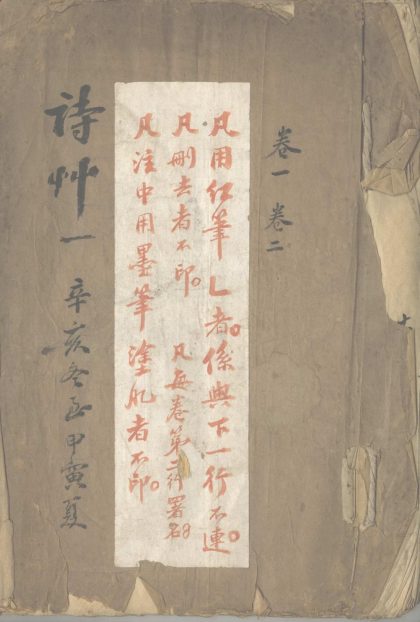 卷一 卷二
凡用红筆乚者。係與下一行不連。
凡刪去者不印。 凡每卷第二行署名
凡注中用墨筆塗凡者不印。
詩艸一 辛亥冬至甲寅夏